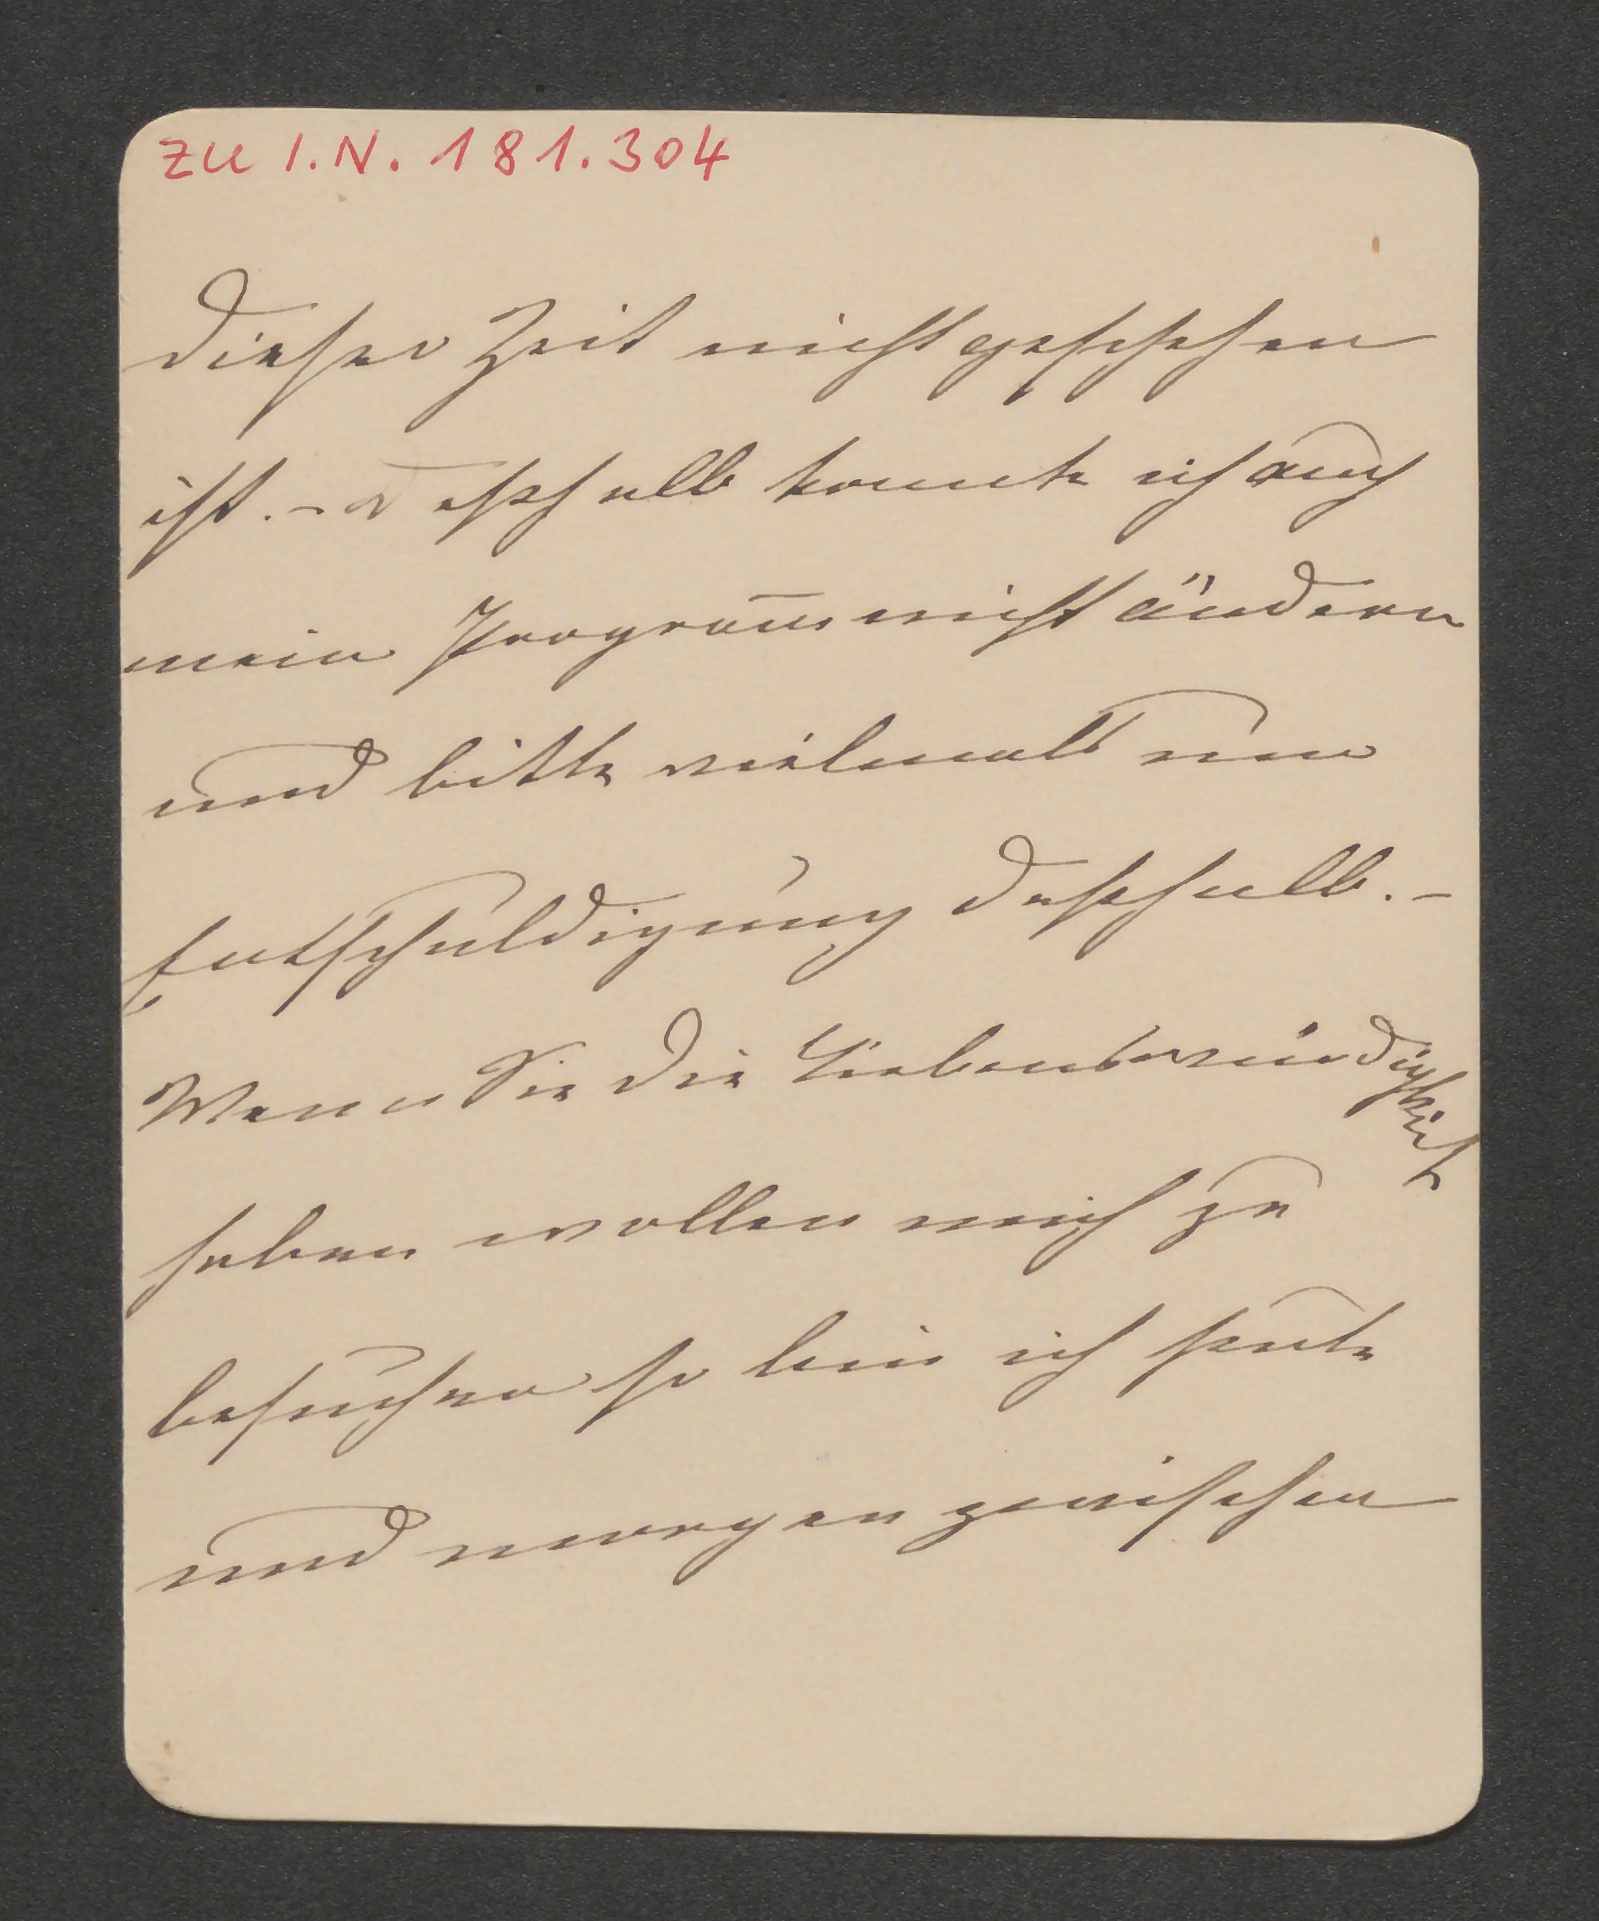 ZU I.N. 181.304
dieser Zeit nicht geschehen
ist. – Deßhalb konnte ich auch
mein Programm̅ nicht ändern
und bitte vielmals um
Entschuldigung deßhalb. –
Wenn Sie die Liebenswürdigkeit
haben wollen mich zu
besuchen so bin ich heute
und morgen zwischen